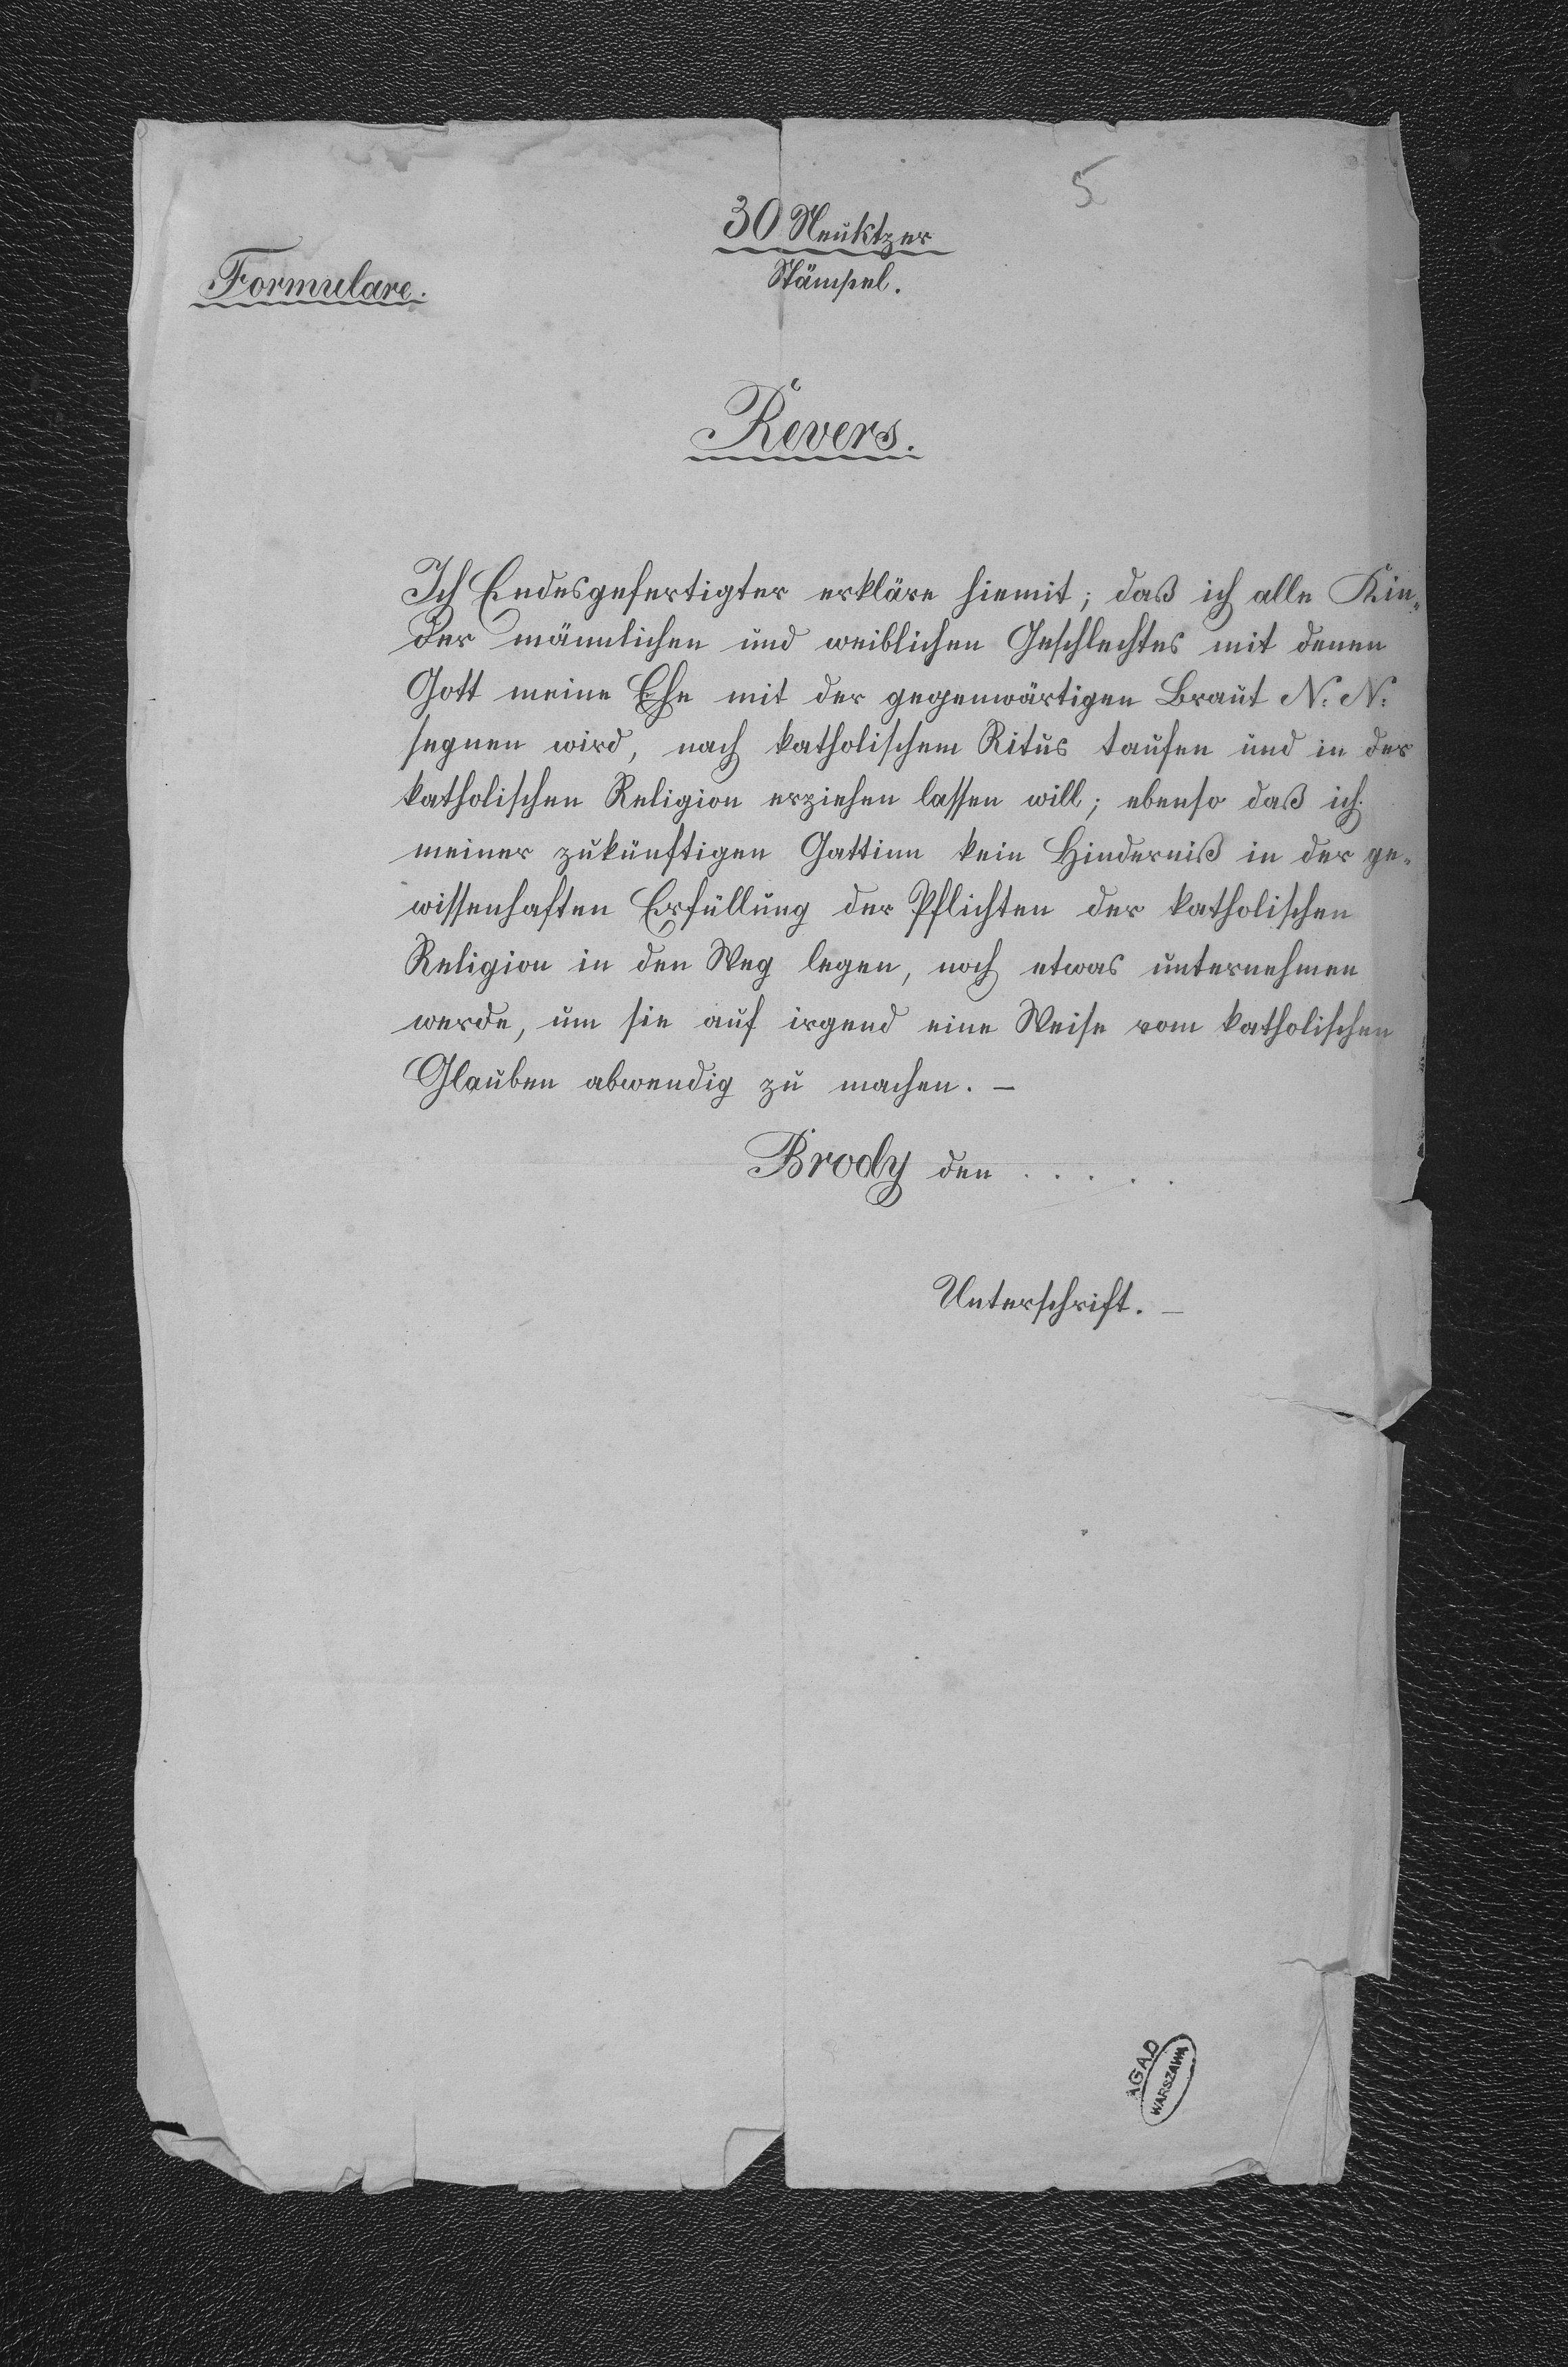 5
30 Neuktzer
Stämpel.
Formulare.
Revers.
Ich Endesgefertigter erkläre hiemit; daß ich alle Kin„
der männlichen und weiblichen Geschlechtes mit denen
Gott meine Ehe mit der gegenwärtigen Braut N: N:
segnen wird, nach katholischem Ritus taufen und in der
katholischen Religion erziehen lassen will; ebenso daß ich
meiner zukünftigen Gattinn kein Hinderniß in der ge„
wissenhaften Erfüllung der Pflichten der katholischen
Religion in den Weg legen, noch etwas unternehmen
werde, um sie auf irgend eine Weise vom katholischen
Glauben abwendig zu machen. –
Brody den . . . . .
Unterschrift. –
AGAD
WARSZAWA